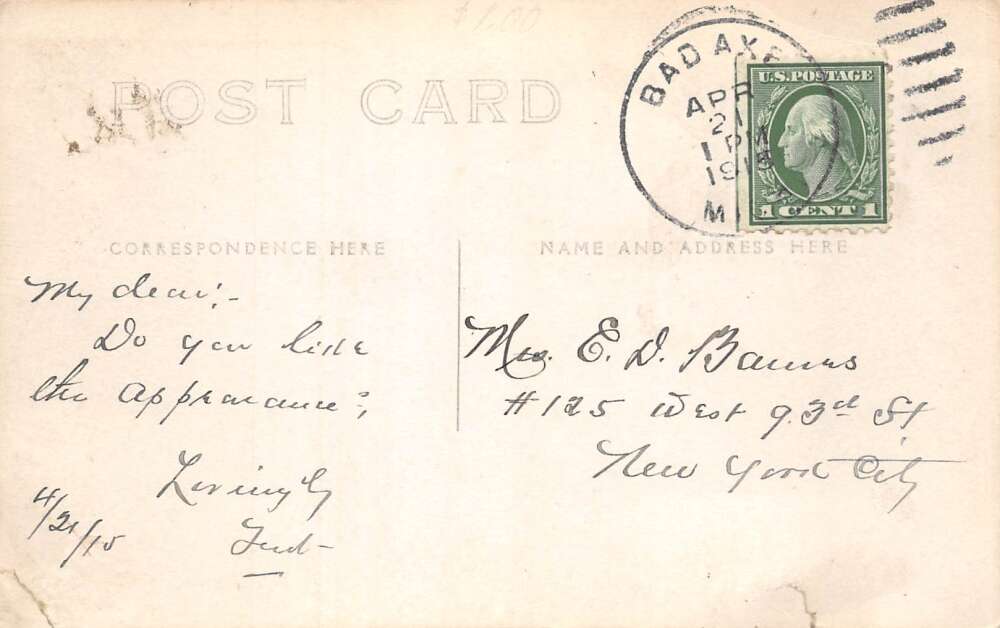 $1.00
POST CARD
BAD AXE
APR
21
1 PM
1915
MI
U.S. POSTAGE
1 CENT 1
CORRESPONDENCE HERE
NAME AND ADDRESS HERE
My dear:-
Do you like
the appearance?
Lovingly
4/21/15
Mrs. E. D. Barnes
#125 West 93rd St
New York City